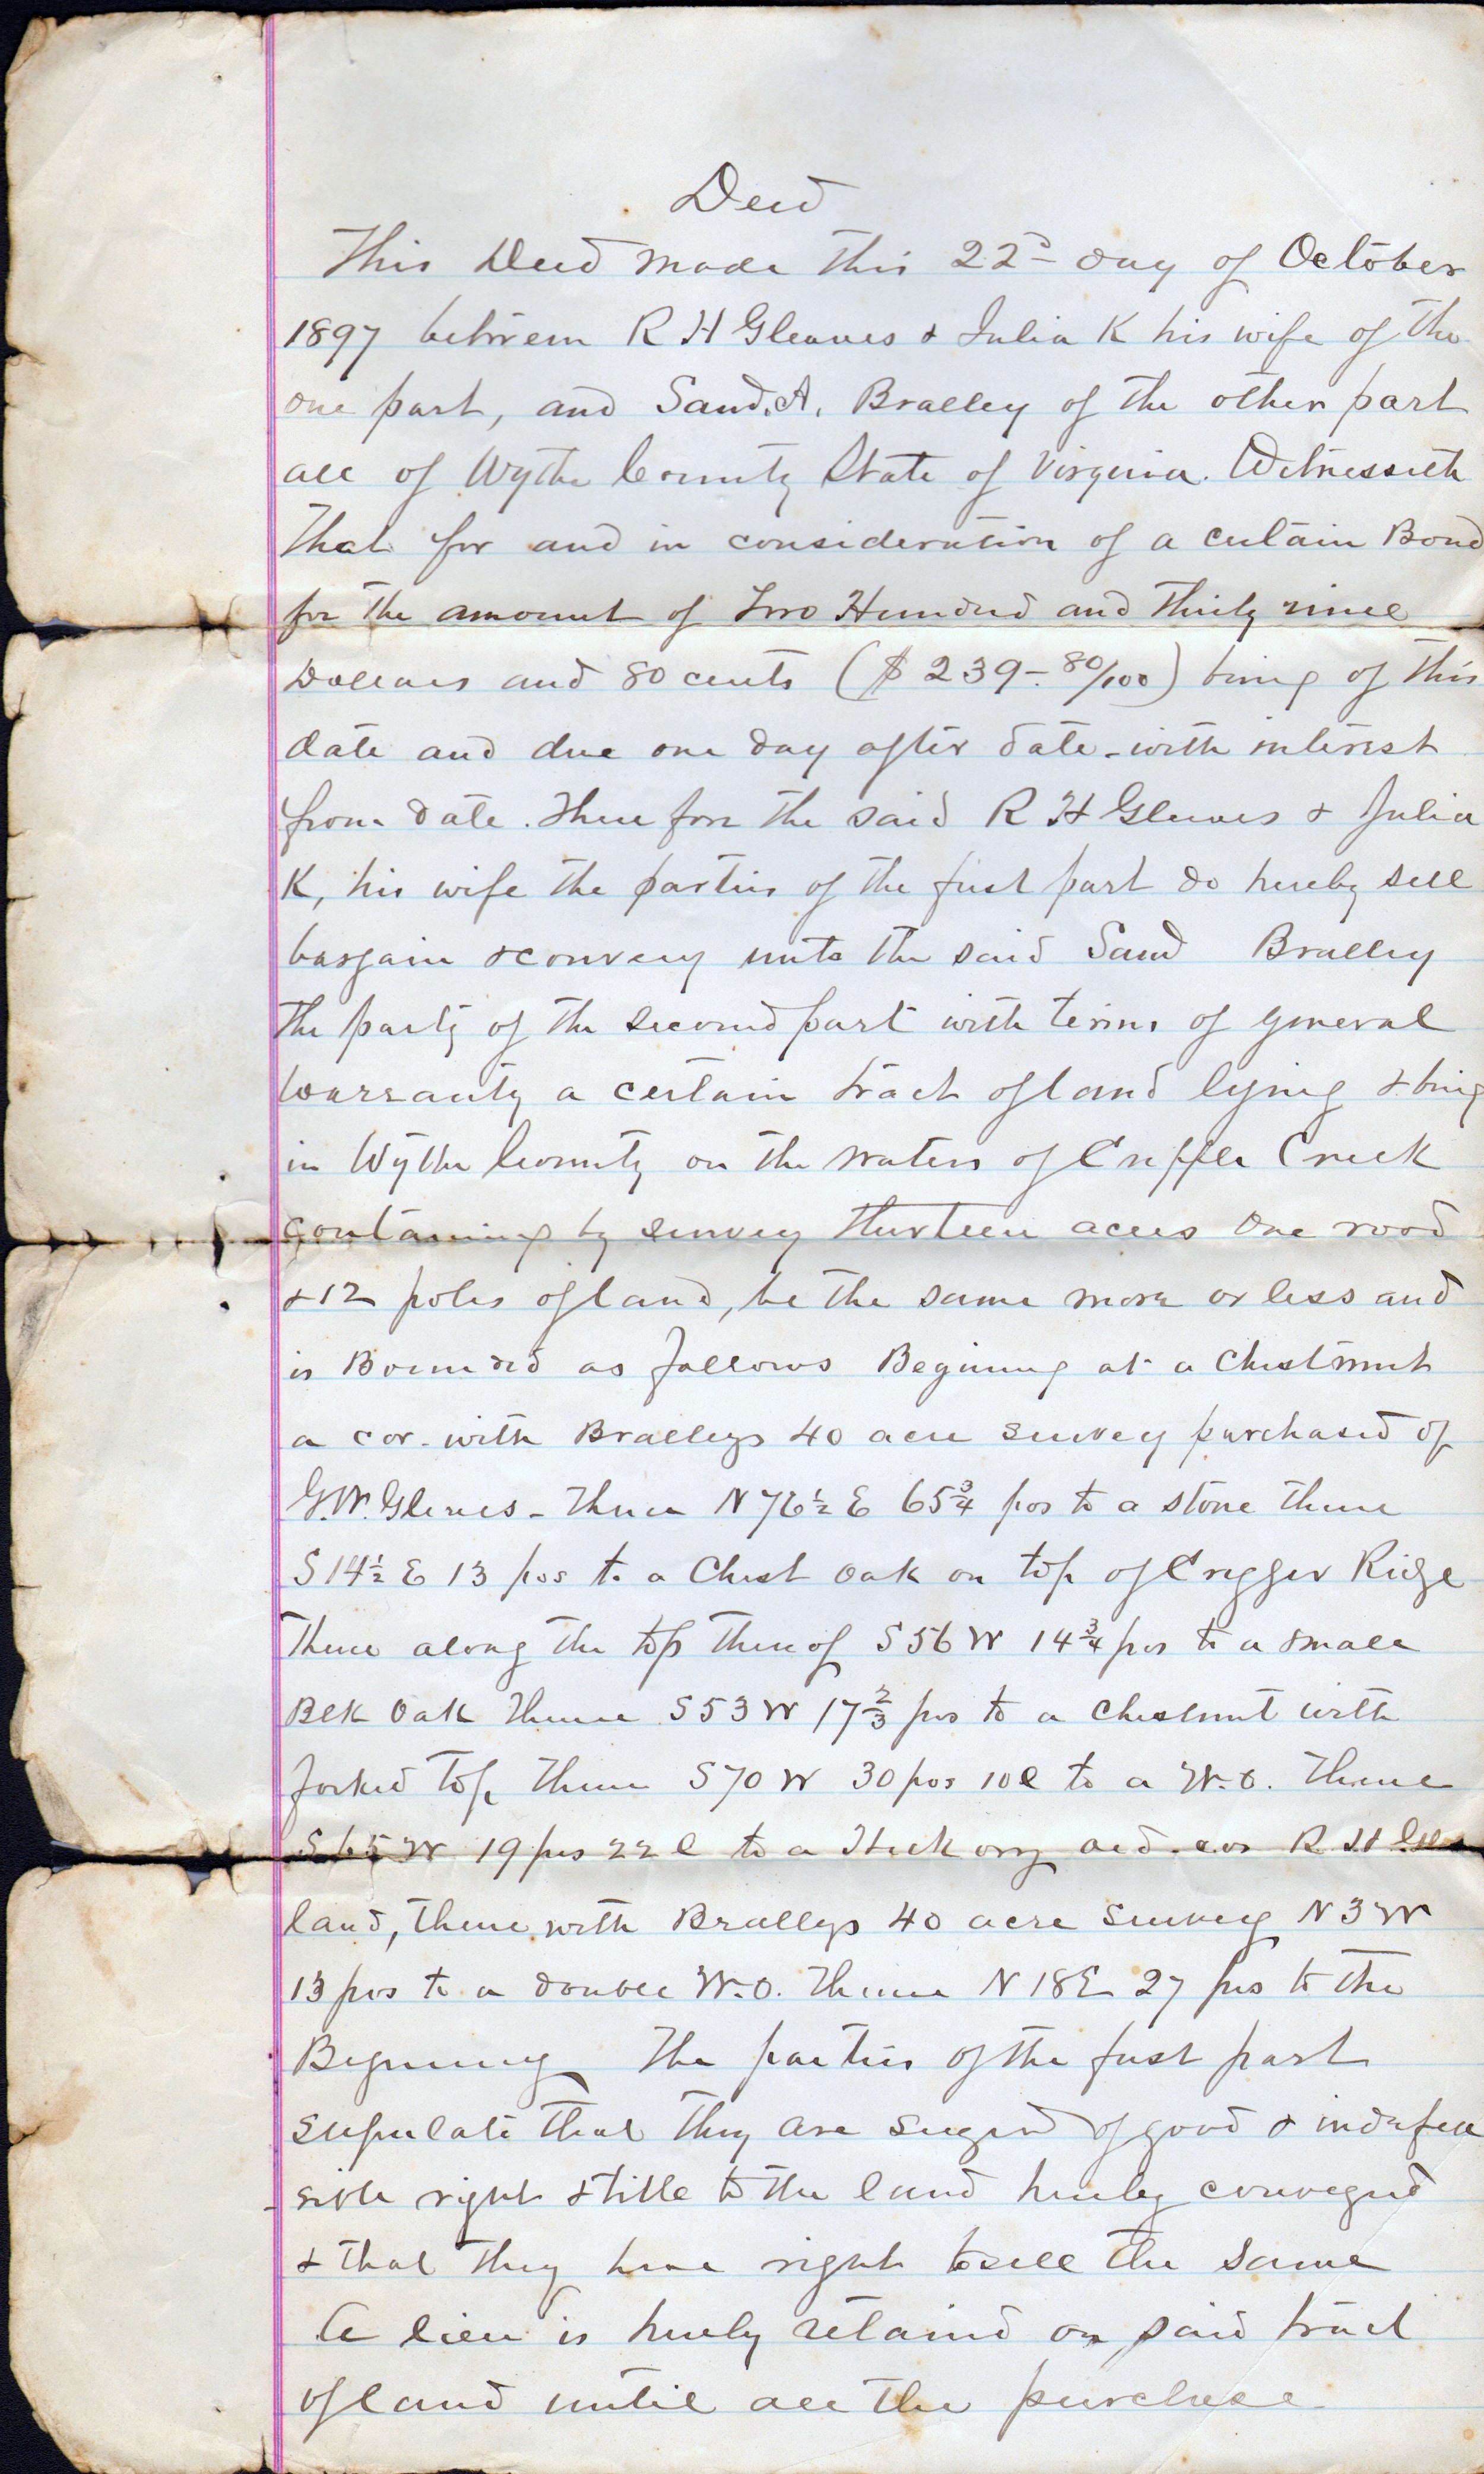 Deed
This Deed made this 22d day of October
1897 between R H Gleaves & Julia K his wife of the
one part, and Sand. A. Bralley of the other part
all of Wythe County State of Virginia. Witnesseth
That for and in consideration of a certain Bond
for the amount of Two Hundred and thirty nine
Dollars and 80 cents ($239-80/100) being of this
date and due one day after date - with interest
from date. Therefore the said R H Gleaves & Julia
K, his wife the parties of the first part do hereby sell
bargain & convey unto the said Sand Bralley
the party of the second part with terms of general
Warranty a certain tract of land lying & being
in Wythe County on the waters of Cripple Creek
containing by survey thirteen acres one rood
& 12 poles of land, be the same more or less and
is Bounded as follows Begining at a Chestnut
a cor. with Bralleys 40 acre survey purchased of
G.W. Gleaves - Thence N 76½ E 65¾ pos to a stone thence
S 14½ E 13 pos to a Chest Oak on top of Crigger Ridge
Thence along the top thereof S 56 W 14¾ pos to a small
Blk Oak thence S 53 W 17⅔ pos to a chestnut with
forked top thence S 70 W 30 pos 10 l to a W.O. thence
S 65 W 19 pos 22 l to a Hickory old cor R H
land, thence with Bralleys 40 acre survey N 3 W
13 pos to a double W.O. thence N 18 E 27 pos to the
Begining The parties of the first part
stipulate that they are seized of good & indefea
sible right & title to the land hereby conveyed
& that they have right to sell the same
A lien is hereby retained on said tract
of land until all the purchase